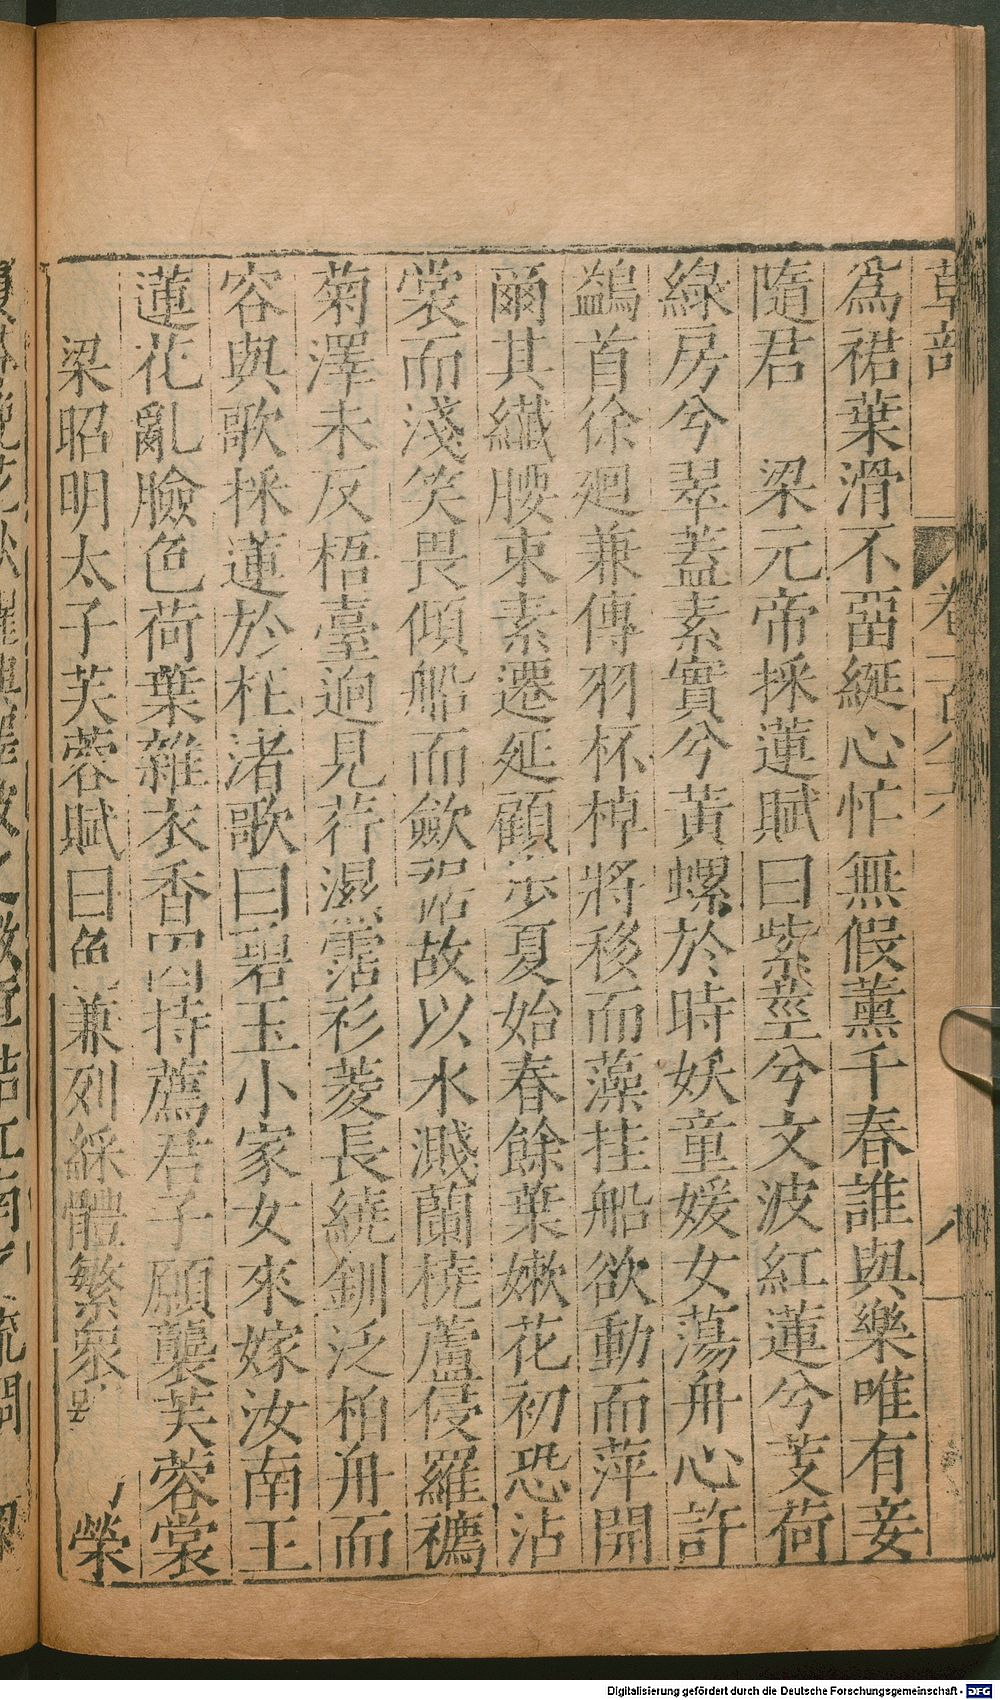 草部
卷
八
為裙葉滑不畱綖心忙無假薰千春誰與樂唯有妾
隨君　梁元帝採蓮賦曰紫莖兮文波紅蓮兮芰荷
綠房兮翠蓋素實兮黃螺於時妖童媛女蕩舟心許
鷁首徐廻兼傳羽杯棹將移而藻挂船欲動而萍開
爾其纖腰束素遷延顧步夏始春餘葉嫩花初恐沾
裳而淺笑畏傾船而歛裾故以水濺蘭橈蘆侵羅䙠
菊澤未反梧臺逈見荇濕霑衫菱長繞釧泛柏舟而
容與歌採蓮於枉渚歌曰碧玉小家女來嫁汝南王
蓮花亂臉色荷葉雜衣香因持薦君子願襲芙蓉裳
梁昭明太子芙蓉賦曰色兼列綵體繁衆號榮
Digitalisierung gefördert durch die Deutsche Forschungsgemeinschaft - DFG